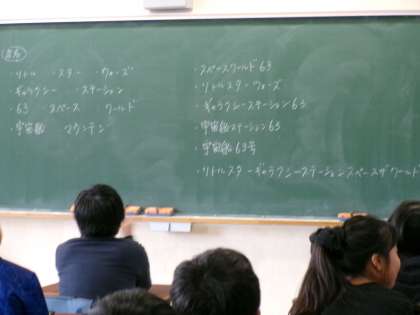 ・リトル ・スター ・ウォーズ
・ギャラクシー ・ステーション
・63 ・スペース ・ワールド
・宇宙船 マウンテン
・スペースワールド63
・リトルスターウォーズ
・ギャラクシーステーション63
・宇宙船ステーション63
・宇宙船63号
・リトルスターギャラクシーステーションスペースザワールド